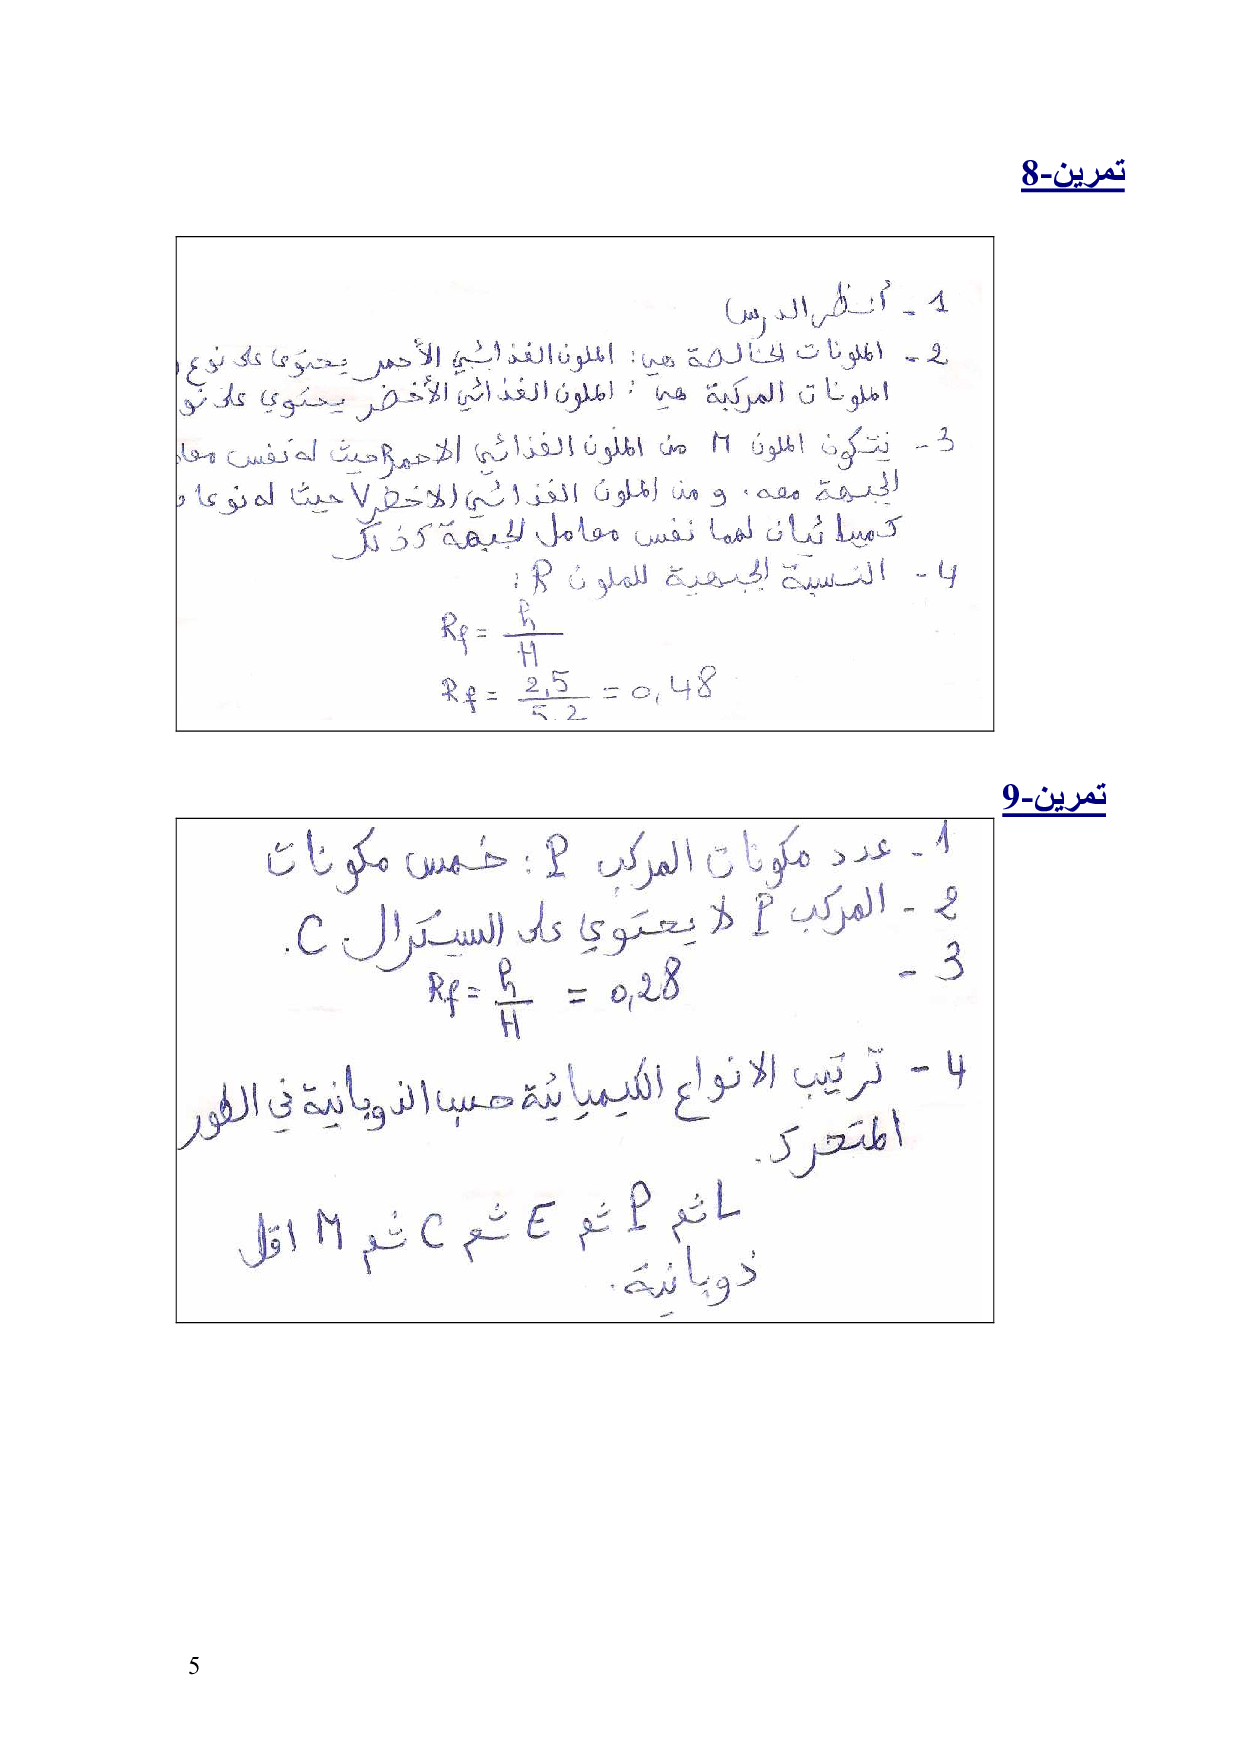 تمرين-8
1 - أنظر الدرس
2 - الملونات الخالصة هي: الملون الغذائي الأحمر يحتوي على نوع
الملونات المركبة هي: الملون الغذائي الأخضر يحتوي على نو
3 - نتكون الملون M من الملون الغذائي الاحمر R حيث له نفس معا
الجبهة معه. و من الملون الغذائي الاخضر V حيث له نوعا
كميبائيان لهما نفس معامل الجبهة كذلك
4 - النسبة الجبهية للملون R:
Rf = h/H
Rf = 2,5/5,2 = 0,48
تمرين-9
1 - عدد مكونات المركب P: خمس مكونات
2 - المركب P لا يحتوي على السيكرال C.
3 -
Rf = h/H = 0,28
4 - ترتيب الانواع الكيميائية حسب الذوبانية في الطور
المتحرك.
L ثم P ثم E ثم C ثم M اقل
ذوبانية.
5